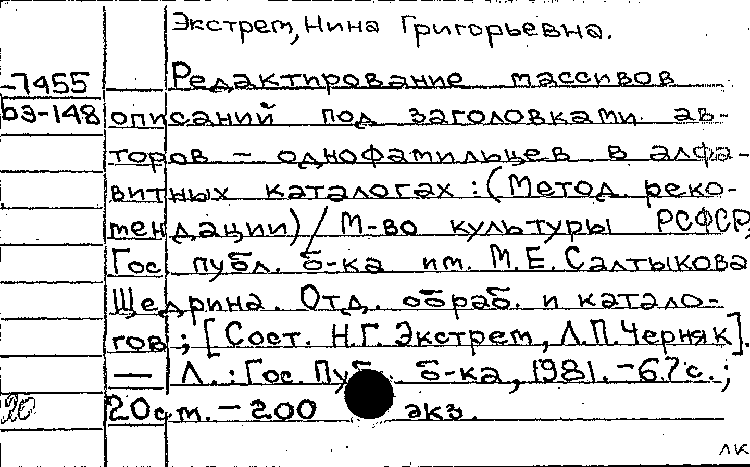 Экстрем, Нина Григорьевна.
-7455 Редактирование массивов
бэ-148 описаний под заголовками ав-
торов - однофамильцев в алфа-
витных каталогах : (Метод. реко-
мендации) / М-во культуры РСФСР,
Гос публ. б-ка им. М.Е. Салтыкова
Щедрина. Отд. обраб. и катало-
гов ; [Сост. Н.Г. Экстрем, Л.П. Черняк].
— Л. : Гос. Пуб. б-ка, 1981. - 67с. ;
20 20 ст. - 200 экз.
ЛК